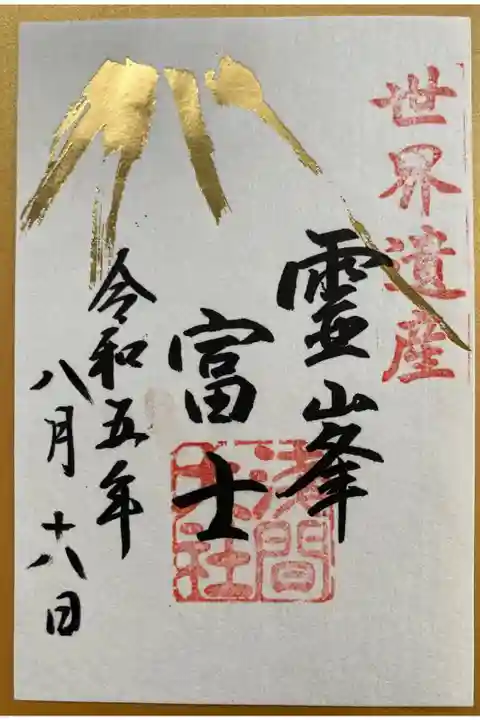 世界遺産
靈峯
富士
浅間
大社
令和五年
八月十八日